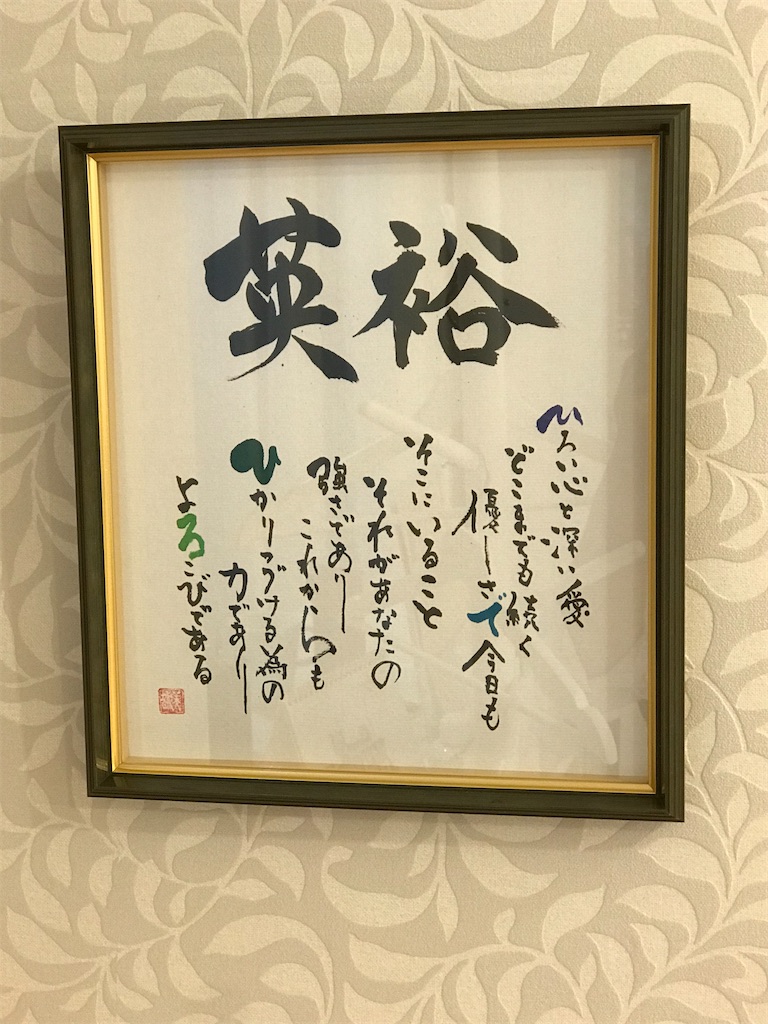 英裕
ひろい心と深い愛
どこまでも続く
優しさで今日も
そこにいること
それがあなたの
強さであり
これからも
ひかりつづける為の
力であり
よろこびである